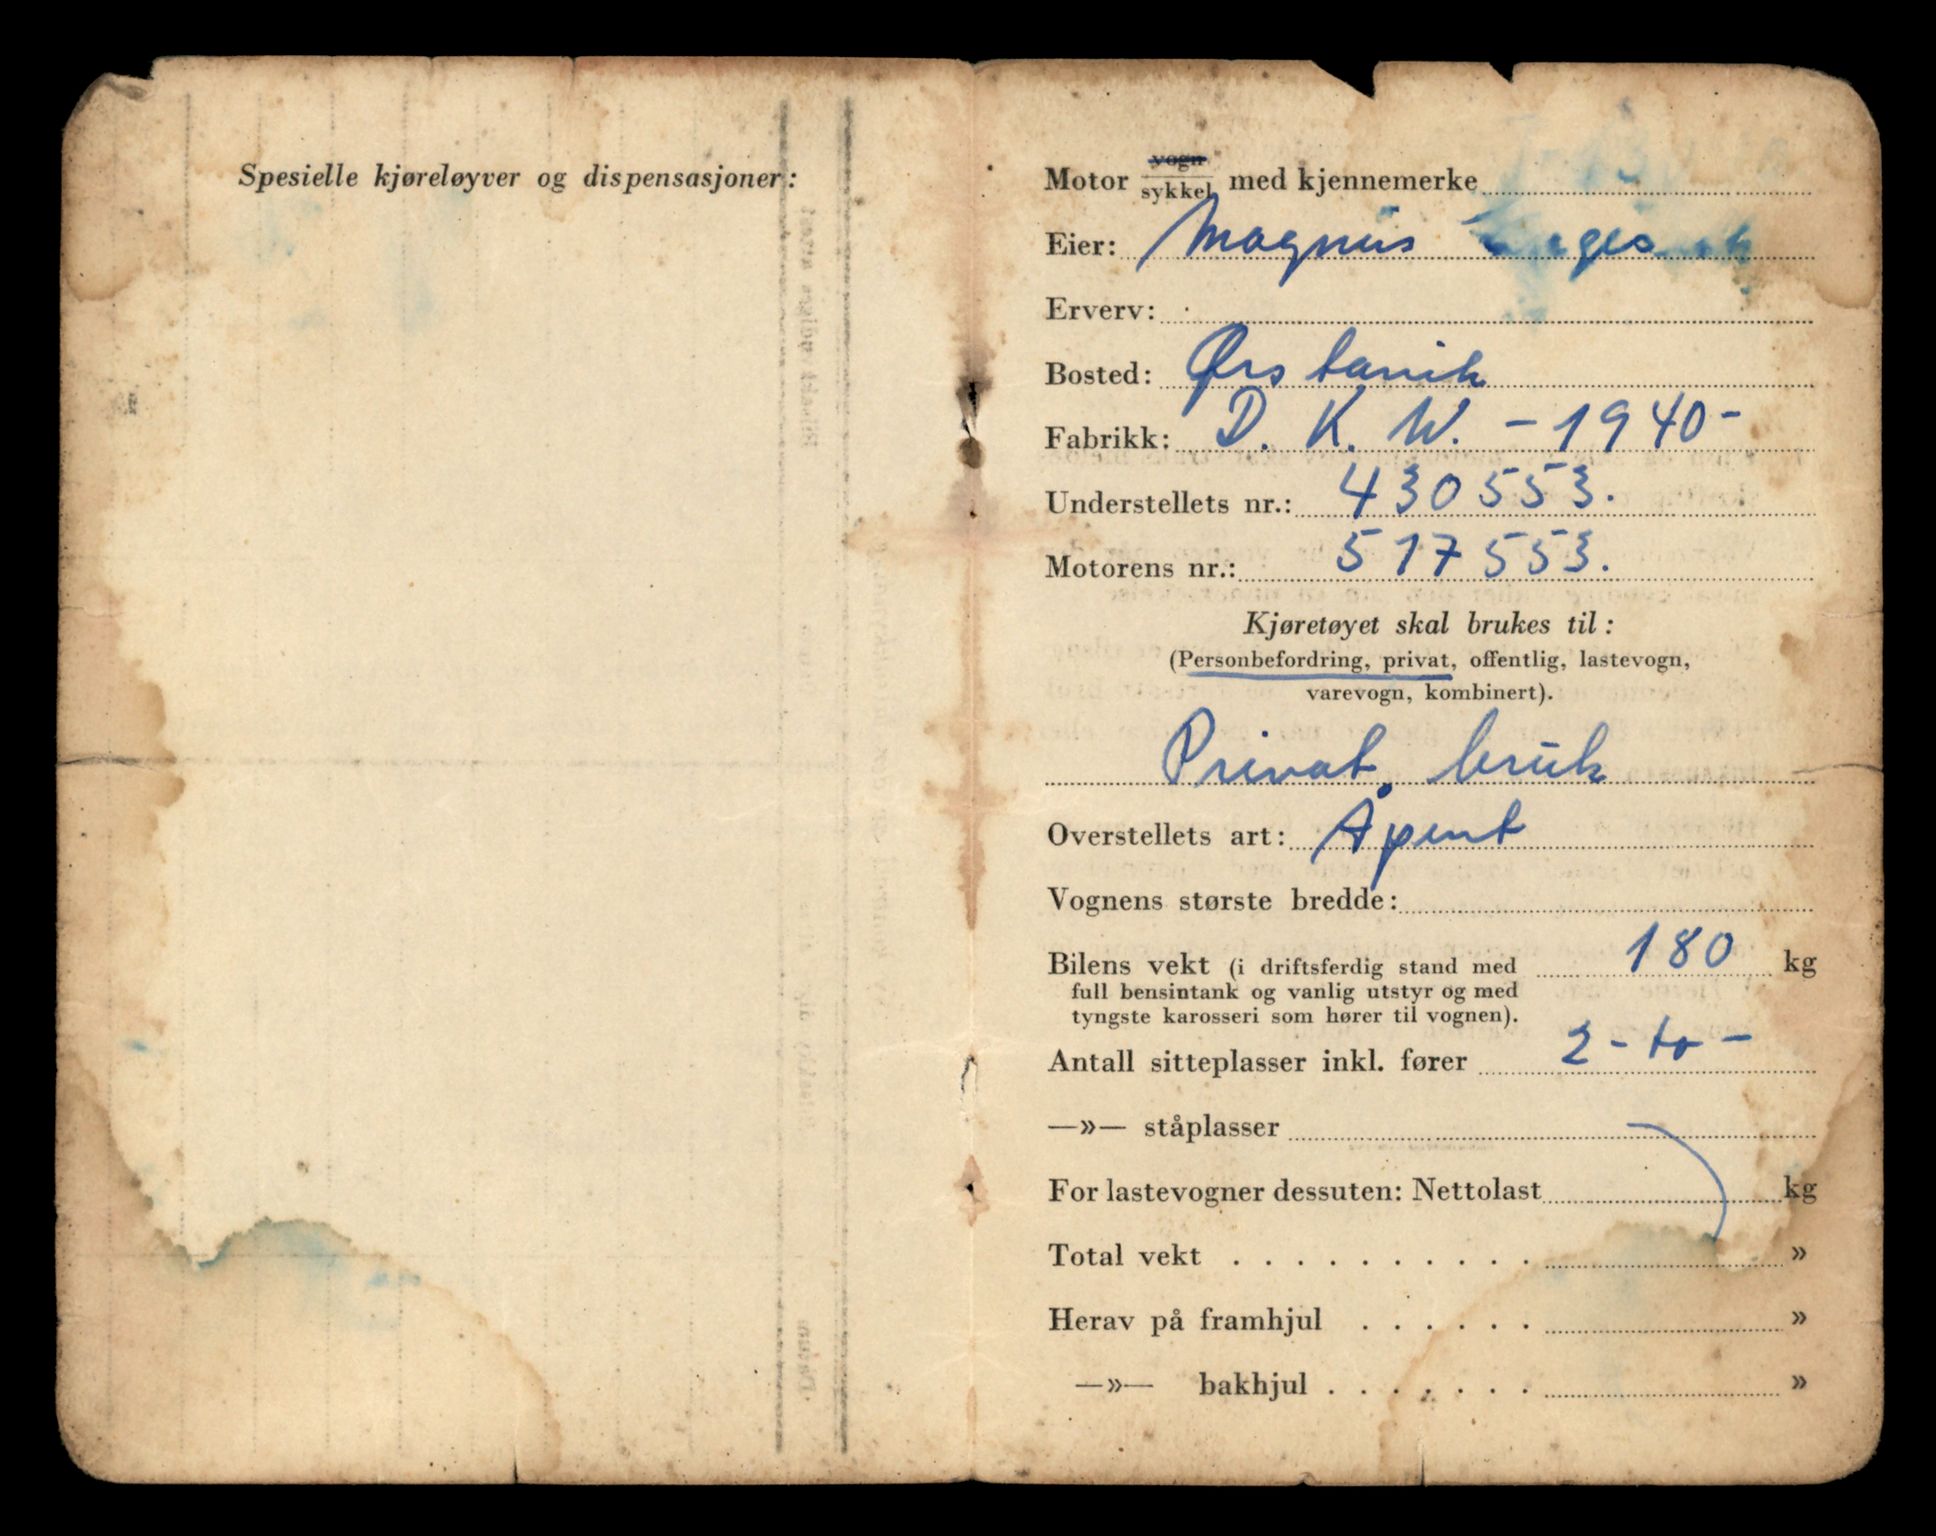 Spesielle kjøreløyver og dispensasjoner:
Motor vogn/sykkel med kjennemerke
Eier: Magnus
Erverv:
Bosted: Ørstavik
Fabrikk: D. K. W. - 1940 -
Understellets nr.: 430553.
Motorens nr.: 517553.
Kjøretøyet skal brukes til:
(Personbefordring, privat, offentlig, lastevogn,
varevogn, kombinert).
Privat bruk
Overstellets art: Åpent
Vognens største bredde:
Bilens vekt (i driftsferdig stand med 180 kg
full bensintank og vanlig utstyr og med
tyngste karosseri som hører til vognen).
Antall sitteplasser inkl. fører 2 - to -
—»— ståplasser
For lastevogner dessuten: Nettolast kg
Total vekt . . . . . . . . . . »
Herav på framhjul . . . . . . »
—»— bakhjul . . . . . . . »